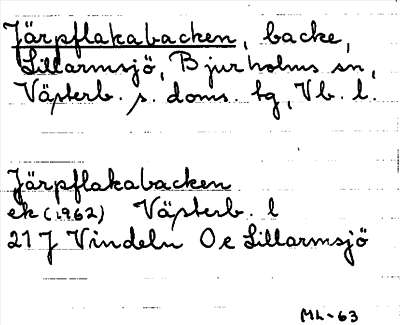 Järpflakabacken, backe,
Lillarmsjö, Bjurholms sn,
Västerb. s. doms. tg, Vb. l.
Järpflakabacken
ek (1962) Västerb. l
21 J Vindeln Oe Lillarmsjö
ML-63